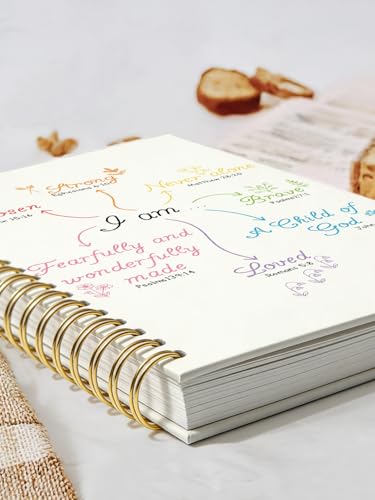 Strong
Ephesians 6:10
Never alone
Matthew 28:20
osen
15:16
I am...
Brave
Psalms 27:1
A Child of
God
John
Fearfully and
wonderfully
made
Psalms 139:14
Loved
Romans 5:8